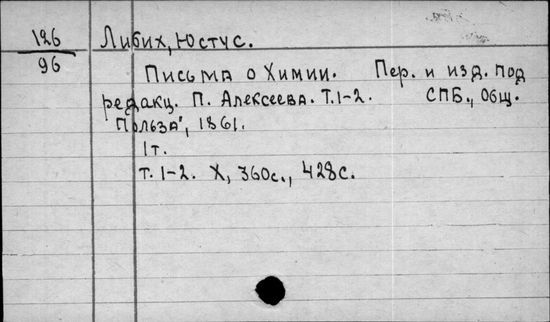 126
96
Либих, Юстус.
Письма о Химии. Пер. и изд. под
редакц. П. Алексеева. Т.1-2. СПБ., Общ.
"Польза", 1861.
1т.
т. 1-2. X, 360с., 428с.